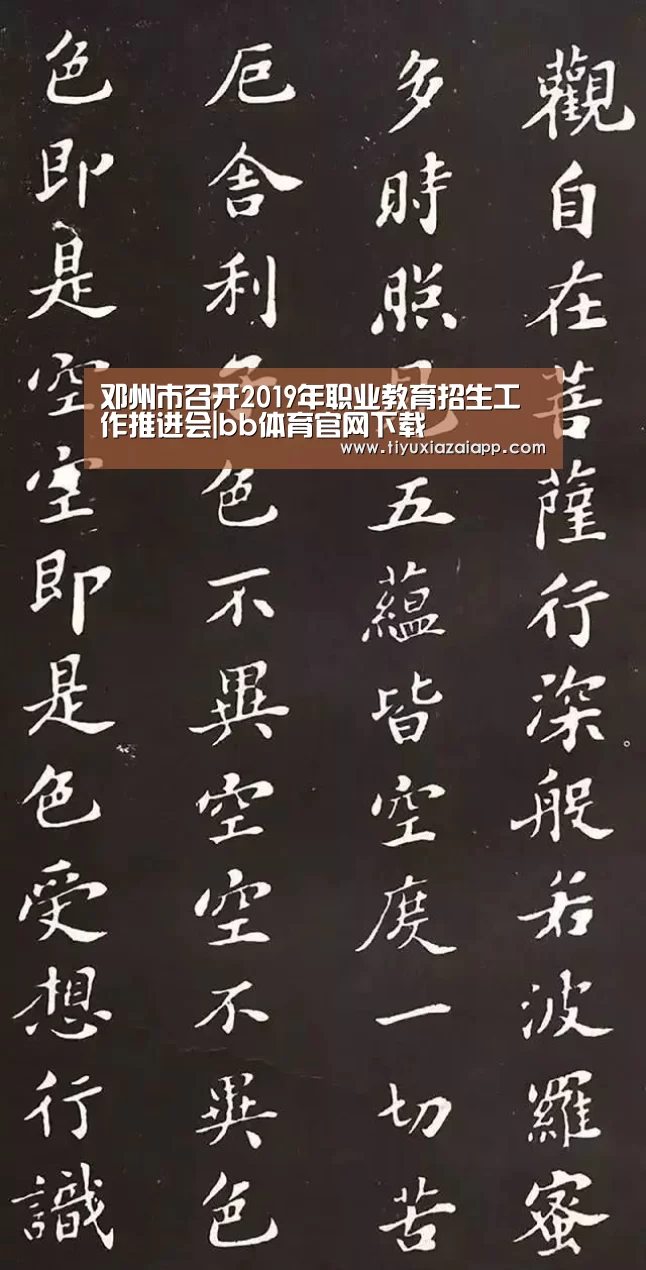 觀自在菩薩行深般若波羅蜜
多時照見五蘊皆空度一切苦
厄舍利子色不異空空不異色
色即是空空即是色受想行識
邓州市召开2019年职业教育招生工
作推进会|bb体育官网下载
www.tiyuxiazaiapp.com